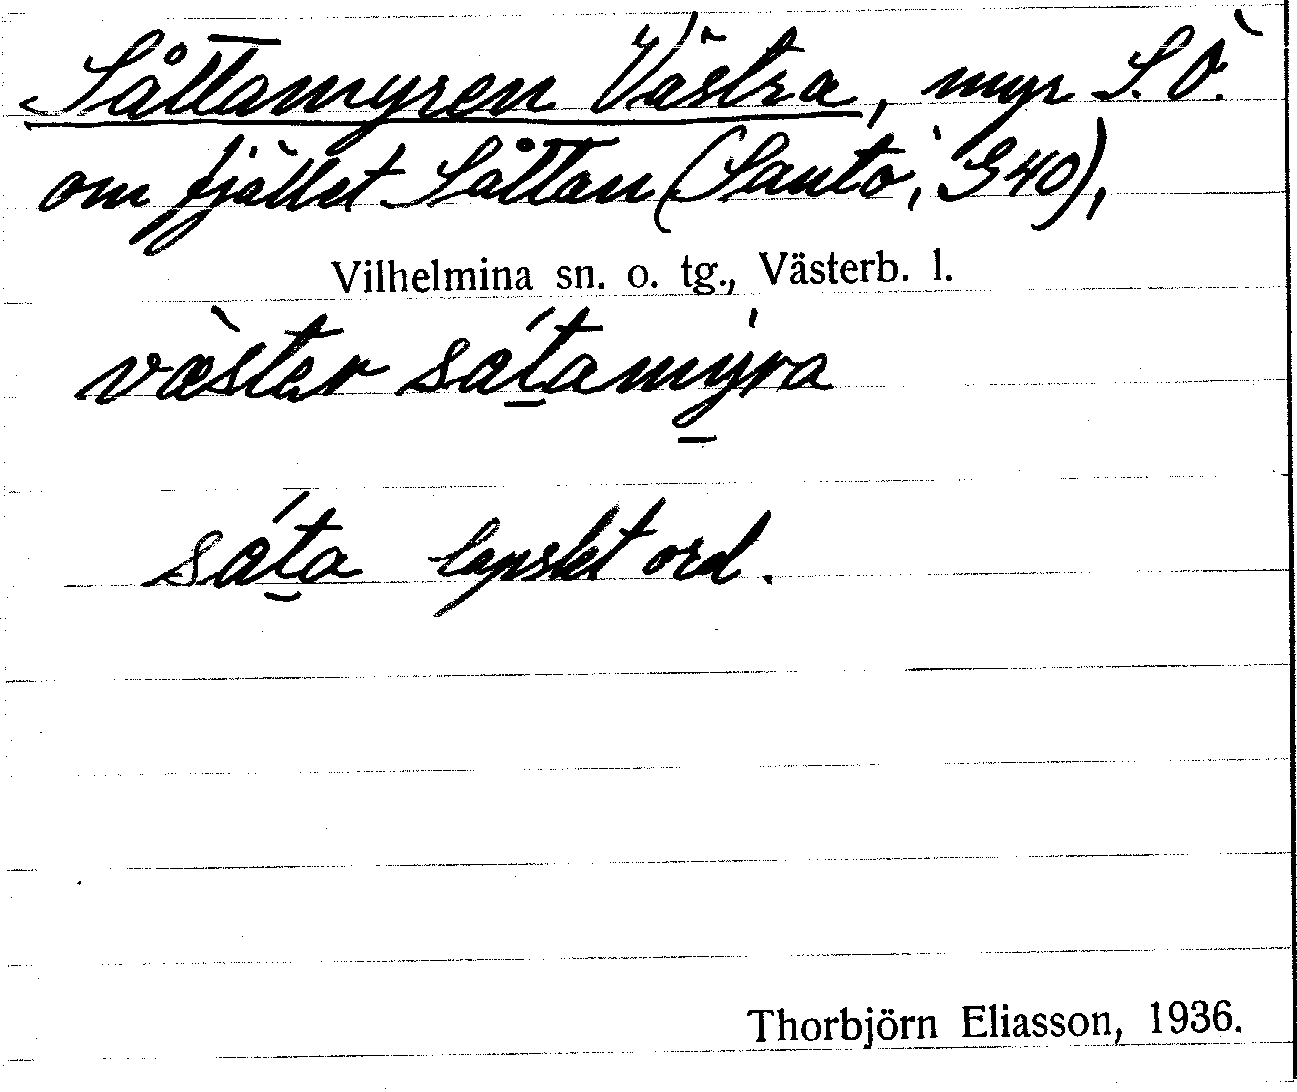 Såttamyren Västra, myr S.Ö.
om fjället Såttan (Sauto, G40),
Vilhelmina sn. o. tg., Västerb. l.
vàster sátamýra
sáta lapskt ord.
Thorbjörn Eliasson, 1936.